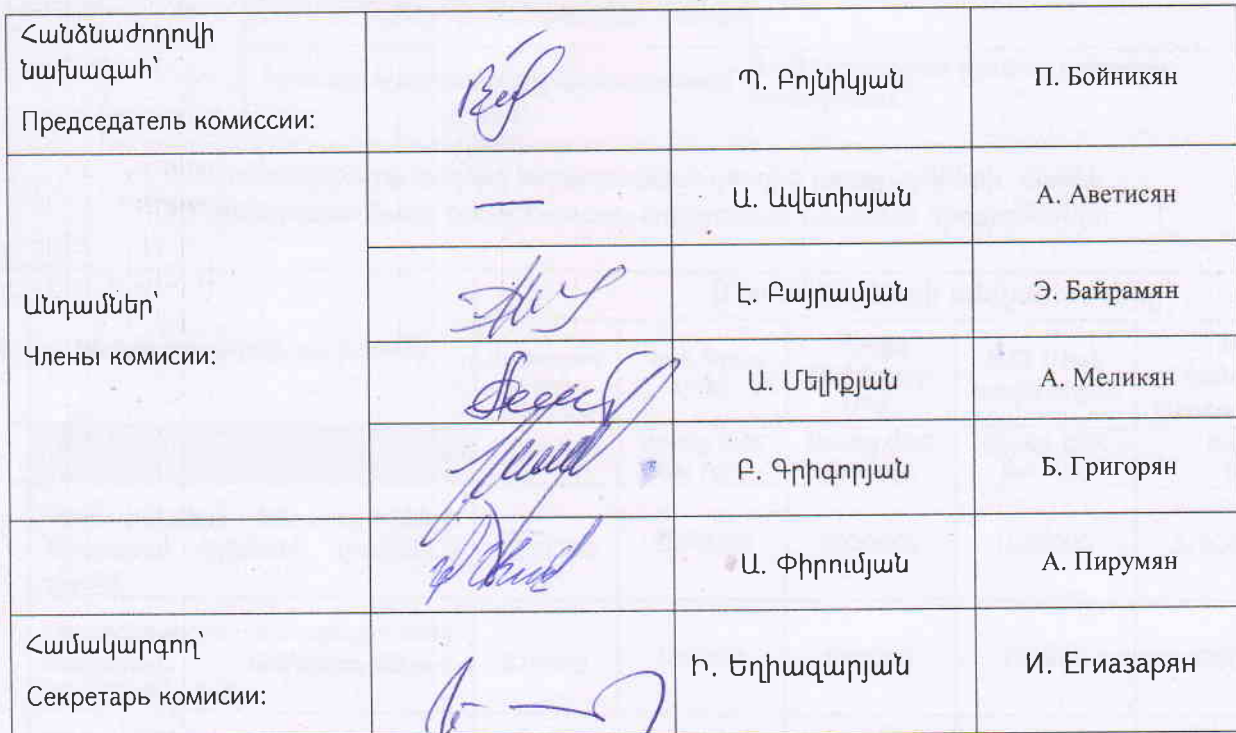 Հանձնաժողովի
նախագահ՝
Председатель комиссии:
Պ. Բոյնիկյան
П. Бойникян
Ա. Ավետիսյան
А. Аветисян
Անդամներ՝
Члены комисии:
Է. Բայրամյան
Э. Байрамян
Ա. Մելիքյան
А. Меликян
Բ. Գրիգորյան
Б. Григорян
Ա. Փիրումյան
А. Пирумян
Համակարգող՝
Секретарь комисии:
Ի. Եղիազարյան
И. Егиазарян